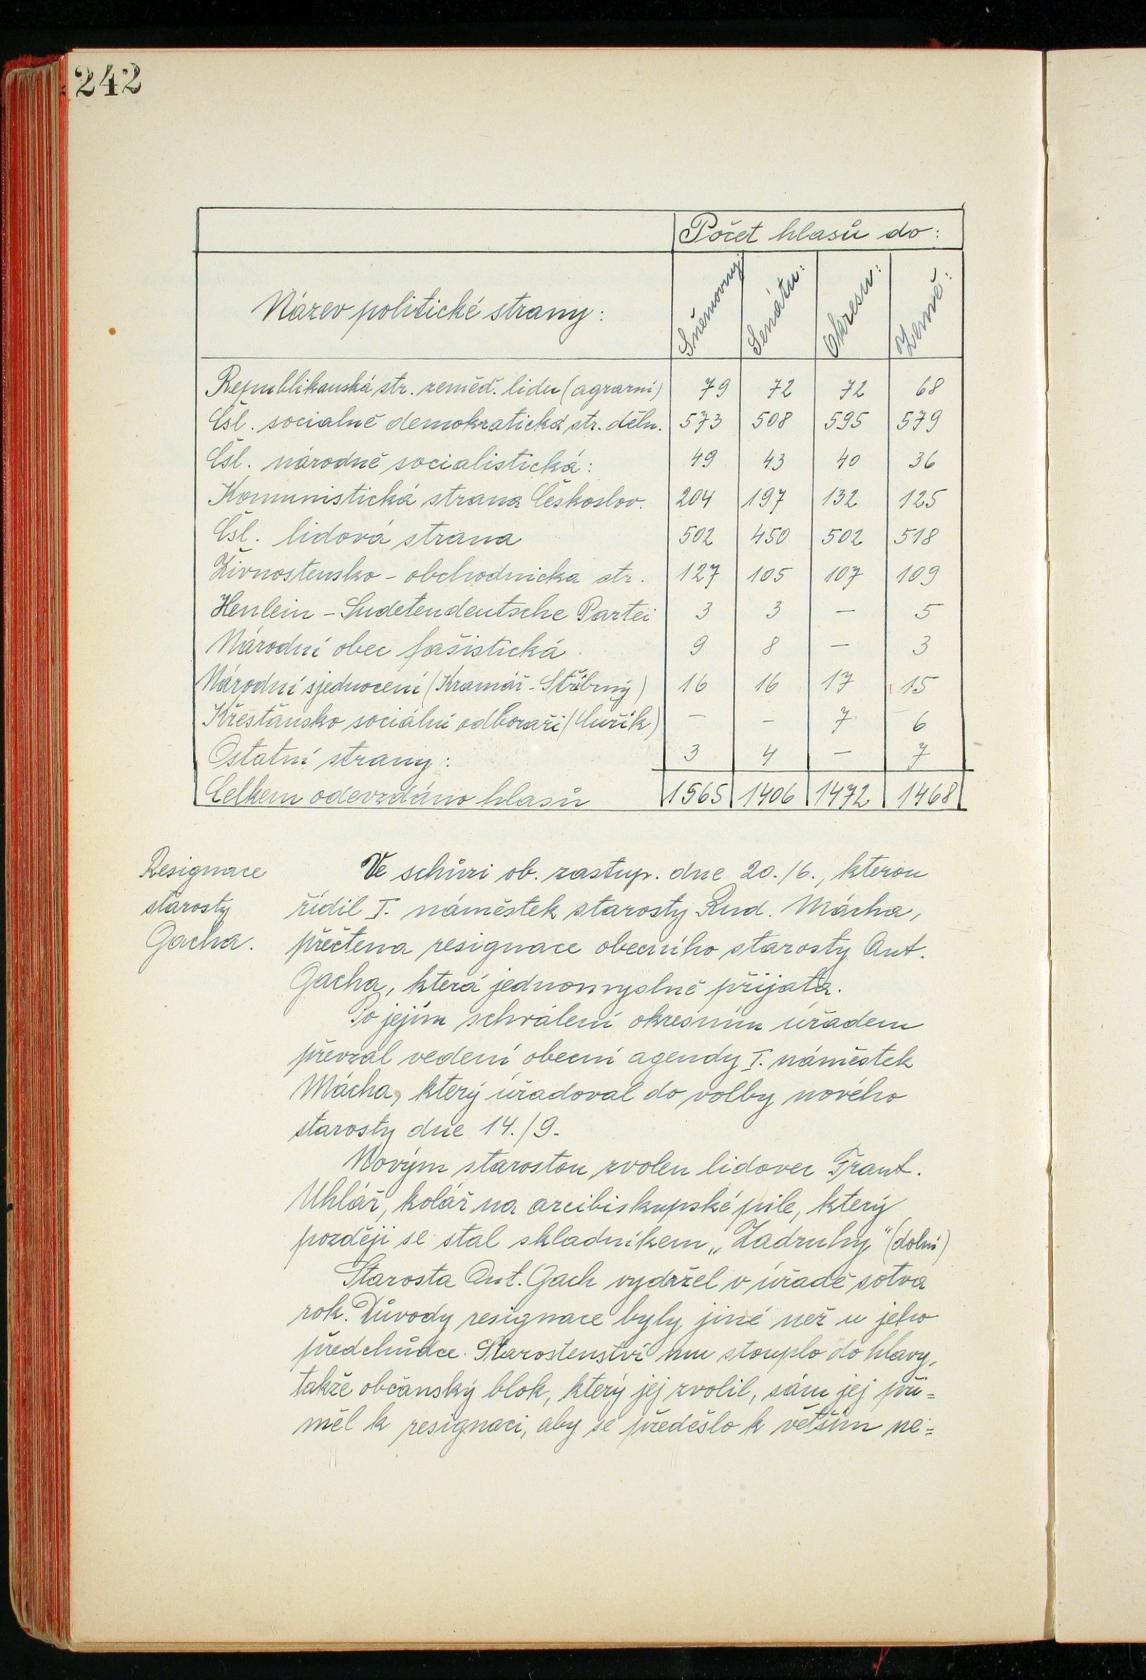 242
Počet hlasů do:
Název politické strany: Sněmovny: Senátu: Okresu: Země:
Republikanská str. zeměd. lidu (agrarní) 79 72 72 68
Čsl. socialně demokratická str. děln. 573 508 595 579
Čsl. národně socialistická: 49 43 40 36
Komunistická strana Českoslov. 204 197 132 125
Čsl. lidová strana 502 450 502 518
Živnostensko - obchodnicka str. 127 105 107 109
Henlein - Sudetendeutsche Partei 3 3 — 5
Národní obec fašistická. 9 8 — 3
Národní sjednocení (Kramář - Stříbrný) 16 16 17 15
Křesťánsko sociální odboraři (Čuřík) — — 7 6
Ostatní strany: 3 4 — 7
Celkem odevzdáno hlasů 1565 1406 1472 1468
Resignace
starosty
Gacha.
Ve schůzi ob. zastup. dne 20./6., kterou
řídil I. náměstek starosty Rud. Mácha,
přečtena resignace obecního starosty Ant.
Gacha, která jednomyslně přijata.
Po jejím schválení okresním úřadem
převzal vedení obecní agendy I. náměstek
Mácha, který úřadoval do volby nového
starosty dne 14./9.
Novým starostou zvolen lidovec Frant.
Uhlář, kolář na arcibiskupské pile, který
později se stal skladníkem „Zadruhy" (dolní)
Starosta Ant. Gach vydržel v úřadě sotva
rok. Důvody resignace byly jiné než u jeho
předchůdce. Starostenství mu stouplo do hlavy,
takže občanský blok, který jej zvolil, sám jej při=
měl k resignaci, aby se předešlo k větším ne=